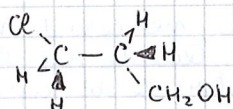 Cl H
C — C H
H
H CH₂OH